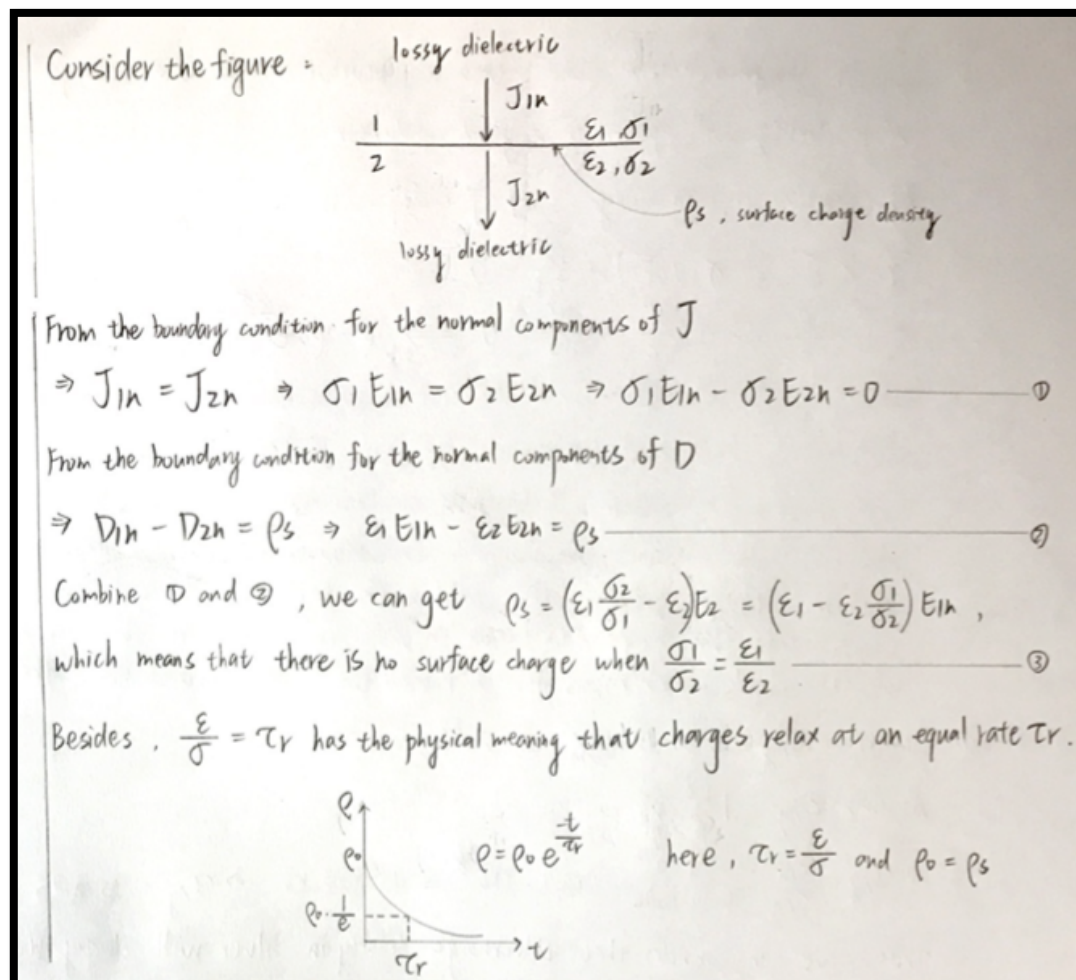 Consider the figure :
lossy dielectric
J1n
1
ε1 σ1
2
ε2, σ2
J2n
ρs , surface charge density
lossy dielectric
From the boundary condition for the normal components of J
⇒ J1n = J2n ⇒ σ1 E1n = σ2 E2n ⇒ σ1E1n - σ2E2n = 0 ①
From the boundary condition for the normal components of D
⇒ D1n - D2n = ρs ⇒ ε1 E1n - ε2 E2n = ρs ②
Combine ① and ② , we can get ρs = (ε1 σ2/σ1 - ε2)E2 = (ε1 - ε2 σ1/σ2) E1n ,
which means that there is no surface charge when σ1/σ2 = ε1/ε2 ③
Besides , ε/σ = τr has the physical meaning that charges relax at an equal rate τr .
ρ
ρ0
ρ = ρ0 e^(-t/τr) here , τr = ε/σ and ρ0 = ρs
ρ0 · 1/e
t
τr